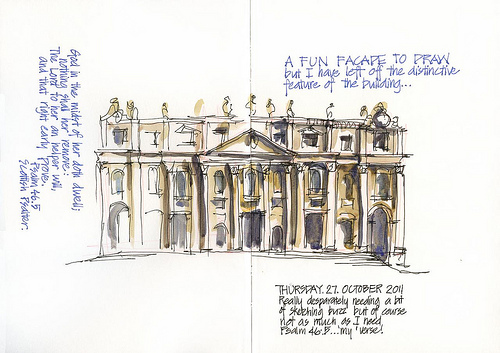 God in the midst of her doth dwell;
nothing shall her remove:
The Lord to her an helper will,
and that right early, prove.
Psalm 46.5
Scottish Psalter.
A FUN FACADE TO DRAW
but I have left off the distinctive
feature of the building...
THURSDAY. 27. OCTOBER 2011
Really desparately needing a bit
of sketching buzz but of course
not as much as I need
Psalm 46.5... 'my' verse!